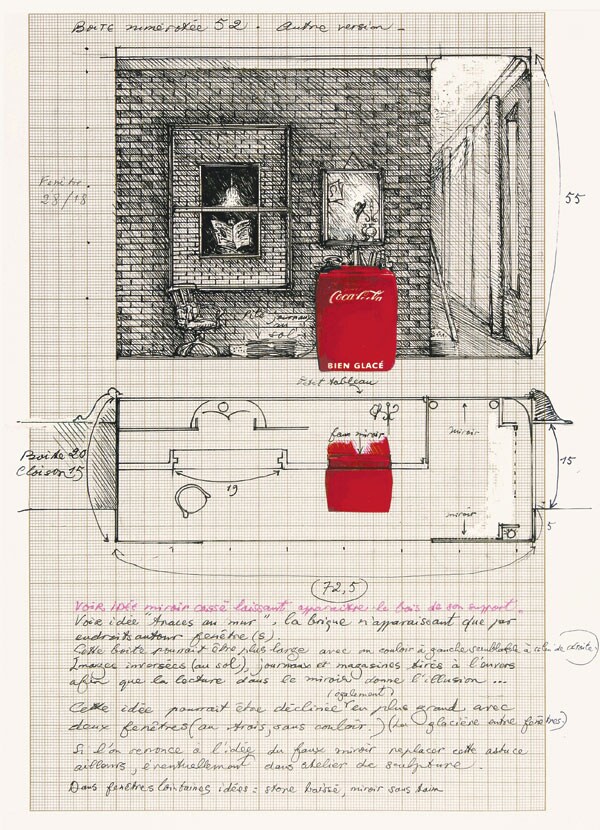 Boîte numérotée 52. Autre version_
Fenêtre
28/18
55
Coca-Cola
BIEN GLACÉ
Petit tableau
faux miroir
miroir
Boîte 20
Cloison 15
19
15
miroir
5
72,5
VOIR IDÉE miroir cassé laissant apparaître le bois de son support.
Voir idée "traces au mur", la brique n'apparaissant que par
endroits autour fenêtre(s).
Cette boîte pourrait être plus large avec un couloir à gauche semblable à celui de droite.
Images inversées (au sol), journaux et magasines tirés à l'envers
afin que la lecture dans le miroir donne l'illusion ...
(également)
Cette idée pourrait être déclinée en plus grand avec
deux fenêtres (au trois, sans couloir.) (La glacière entre fenêtres)
Si l'on renonce à l'idée du faux miroir replacer cette astuce
ailleurs, éventuellement dans atelier de sculpture.
Dans fenêtres lointaines idées : store baissé, miroir sans tain